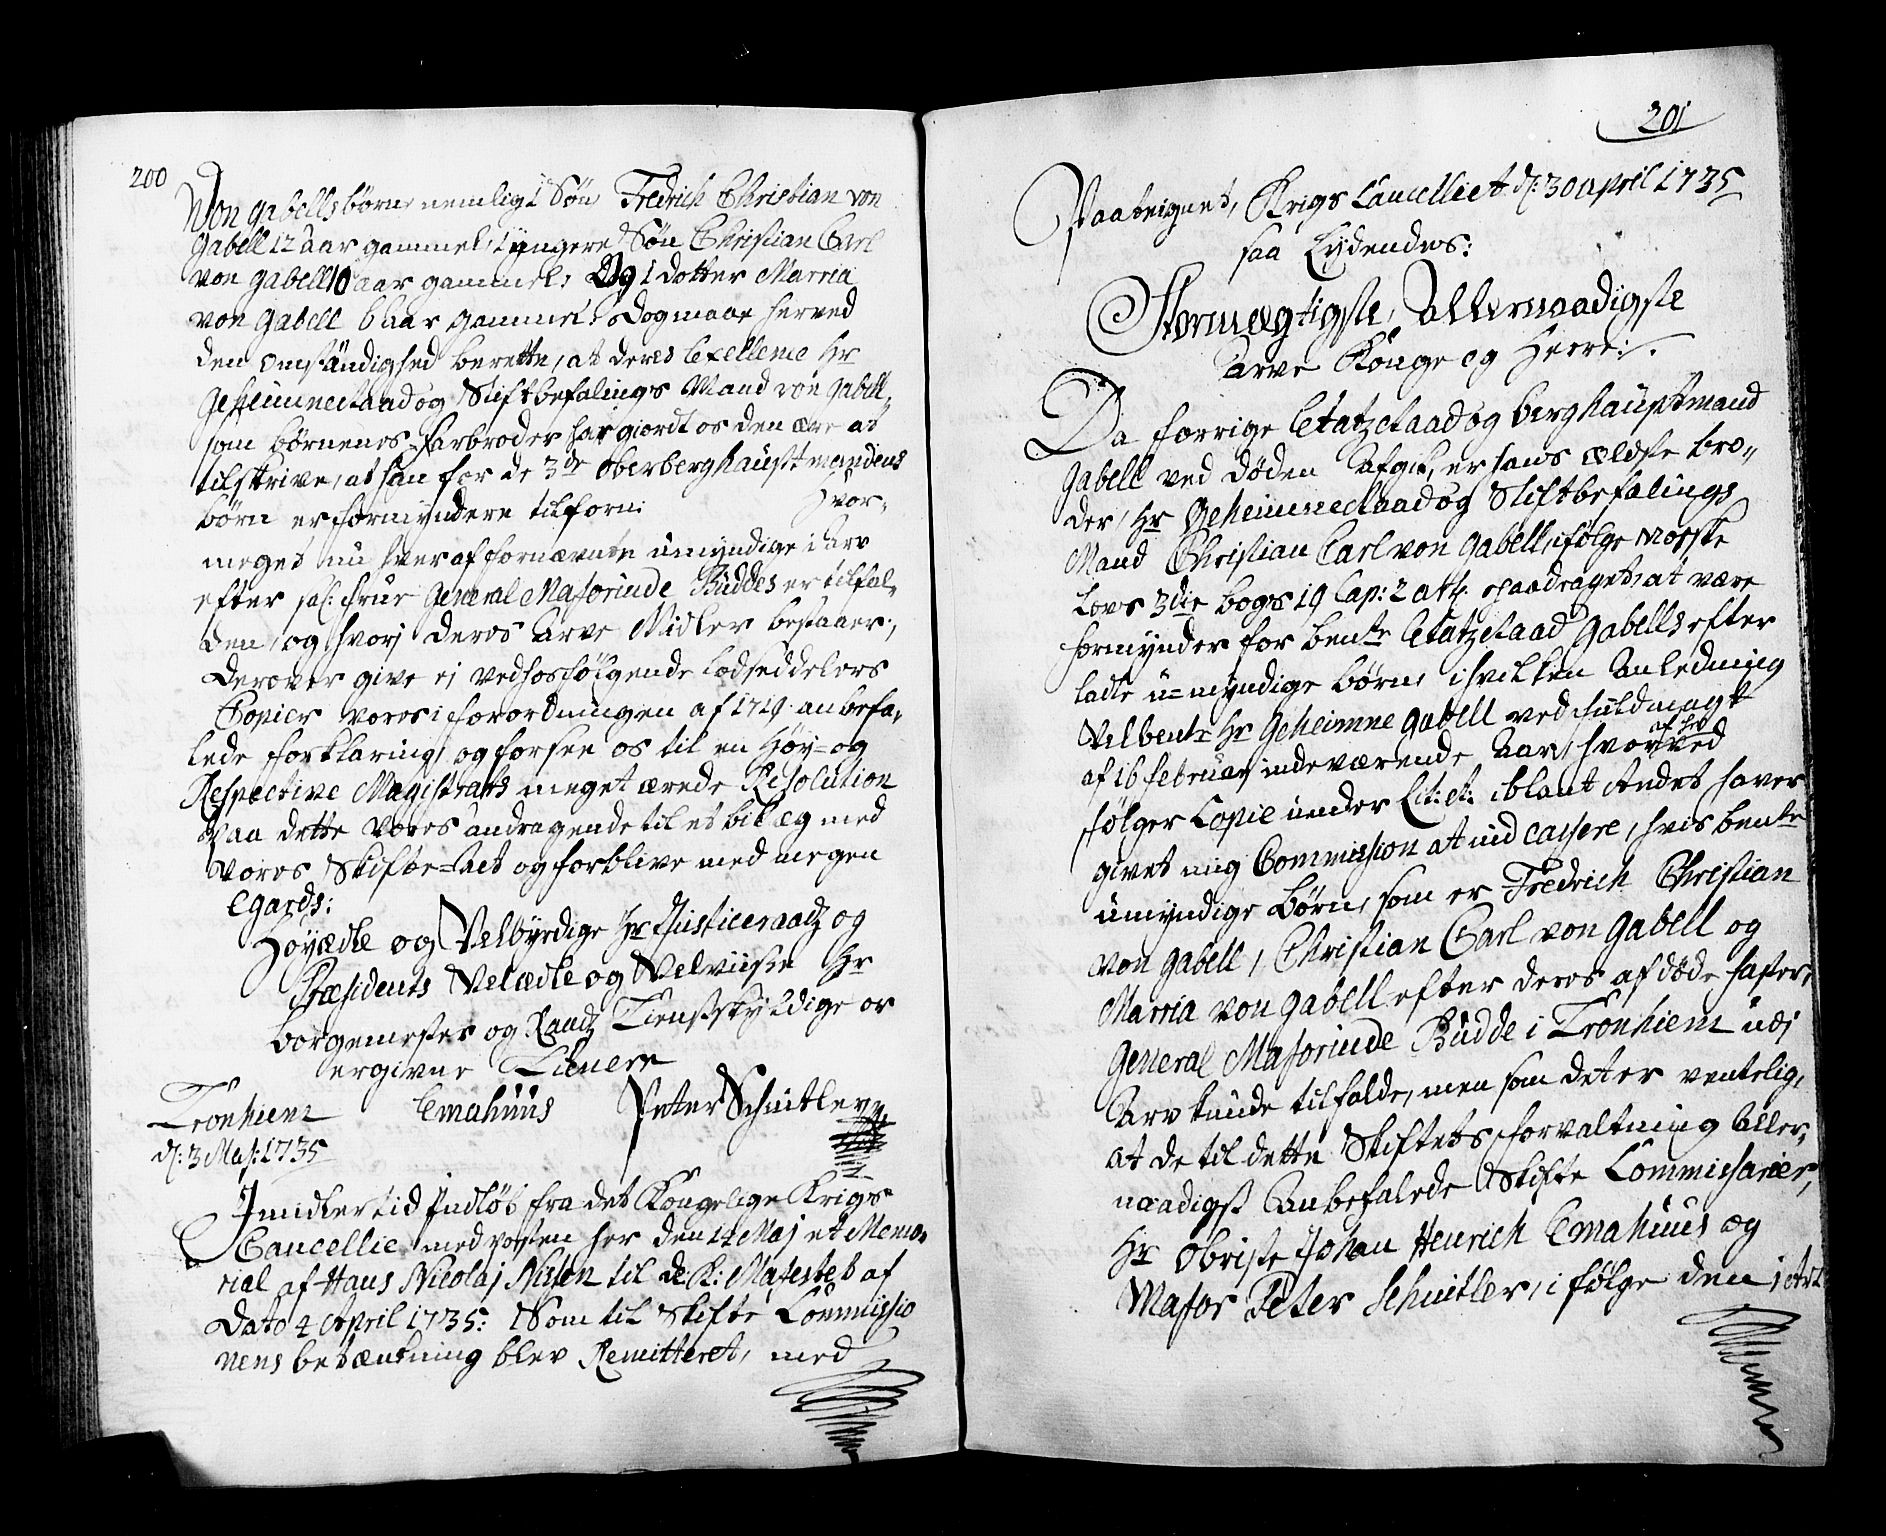 200
Von Gabells børn, nemlig 1 Søn Fredrich Christian von
Gabell 12 aar gammel, 1 yngere Søn Christian Carl
von Gabell 10 aar gammel, Og 1 dotter Marria
von Gabell 6 aar gammel. Dog maae herved
den omständighed berette, at deres Excellence Hr
Geheimme Raad og Stiftbefalings Mand von Gabell,
som børnenes Farbroder har giordt os den ære at
tilskrive, at han for de 3de Oberberghauptmandens
børn er formyndere tilforn: Hvor-
meget nu hver af fornævnte umyndige i arv
efter sal: Frue General Majorinde Buddes er tilfal-
den, og hvorj deres Arve Midler bestaaer,
derover give ej vedhosfølgende Lodseddelers
Copier vores i forordningen af 1719 anbefa-
lede forklaring, og forsee os til en Høy- og
Respective Magistrats meget ærede Resolution
paa dette vores andragende til et bilæg med
vores Skifte-Act og forblive med megen
Egards:
Høyædle og Velbyrdige Hr Justiceraadz og
Præsidents Velædle og Velviise Hr
borgemester og Raadz Tienstskyldige or
ergivne Tienere
Tronhiem Emahuus Peter Schnitler
d: 3 Maj: 1735
Imidlertid Indløb fra det Kongelige Krigs
Cancellie, med posten her den 14 Maj et Memo-
rial af Hans Nicolaj Nissen til de K: Majestet af
Dato 4 April 1735: Som til Skifte Commissio
nens betænkning blev Remitteret, med
201
Paateignet, Krigs Cancelliet d: 30 April 1735
saa Lydendes:
Stormægtigste, Allernaadigste
Arve Konge og Herre:
Da forrige Etatzraad og berghauptmand
Gabell ved døden Afgik, er hans ældste bro-
der, Hr Geheimme Raad og Stiftbefalings
Mand Christian Carl von Gabell, ifølge Norske
Lovs 3die bogs 19 Cap: 2 art. paadraget, at være
formynder for bente Etatzraad Gabells efter
ladte u-myndige børn, i hvilken Anledning
Velbente Hr Geheimme Gabell ved fuldmagt
af 16 Februar, indeværende Aar, hvoraf her ved
følger Copie under Lit: A: iblant Andet haver
givet mig Commission at ind cassere, hvis bente
umyndige Børn, som er Fredrich Christian
von Gabell, Christian Carl von Gabell og
Marria von Gabell efter deres afdøde faster,
General Majorinde Budde i Tronhiem udj
Arv kunde tilfalde, men som det er ventelig,
at de til dette Skiftets forvaltning Aller-
naadigst Anbefalede Skifte Commissarier,
Hr Obriste Johan Henrich Emahuus og
Major Peter Schnitler, i følge den 1 Art